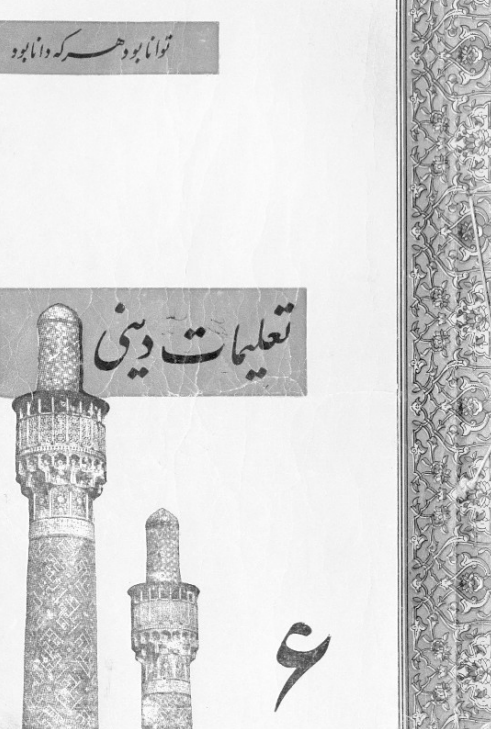 توانا بود هر که دانا بود
تعلیمات دینی
۶